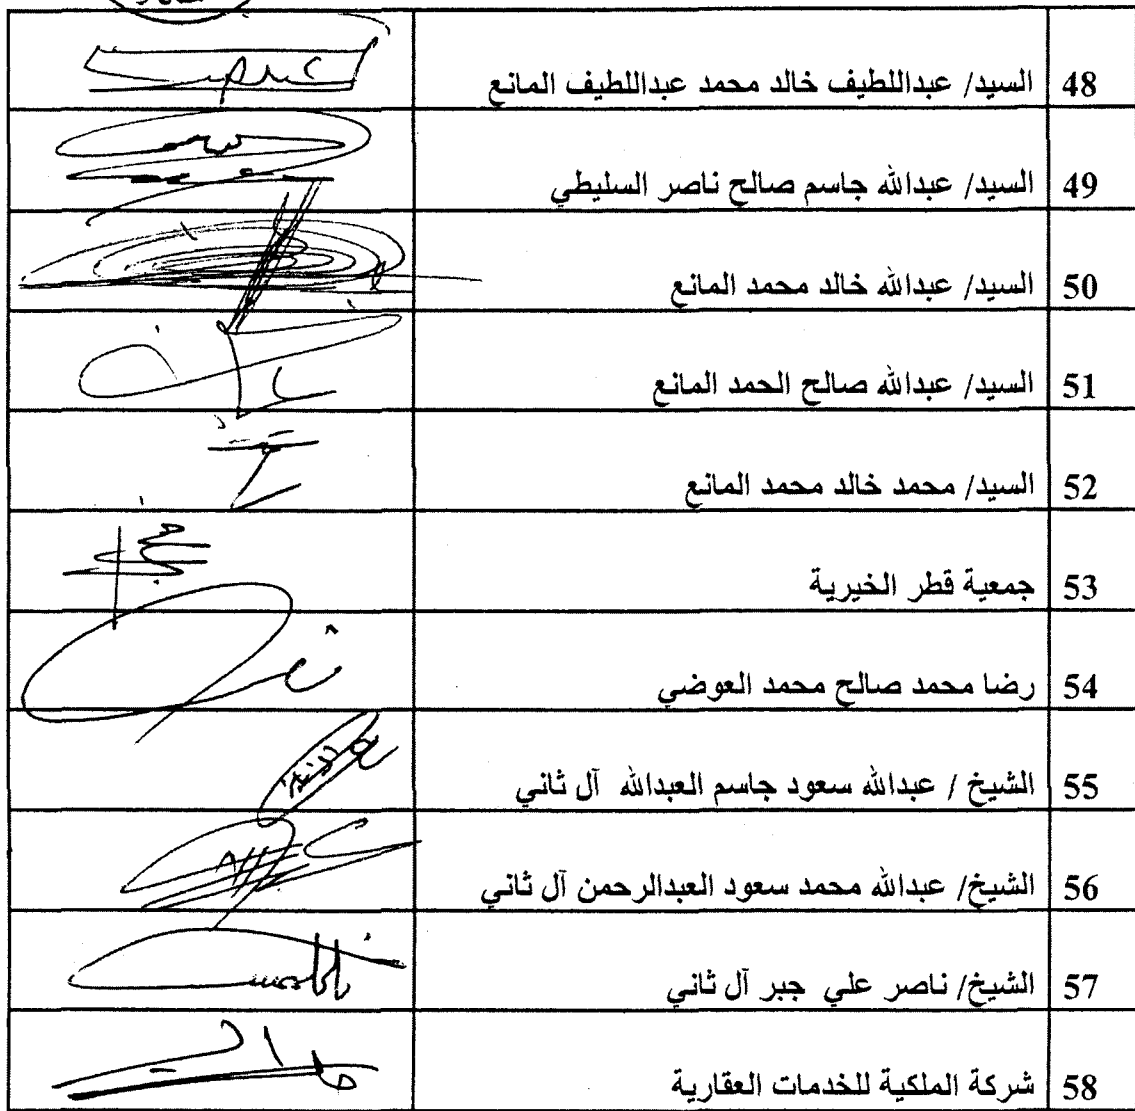 48 السيد/ عبداللطيف خالد محمد عبداللطيف المانع
49 السيد/ عبدالله جاسم صالح ناصر السليطي
50 السيد/ عبدالله خالد محمد المانع
51 السيد/ عبدالله صالح الحمد المانع
52 السيد/ محمد خالد محمد المانع
53 جمعية قطر الخيرية
54 رضا محمد صالح محمد العوضي
55 الشيخ / عبدالله سعود جاسم العبدالله آل ثاني
56 الشيخ/ عبدالله محمد سعود العبدالرحمن آل ثاني
57 الشيخ/ ناصر علي جبر آل ثاني
58 شركة الملكية للخدمات العقارية